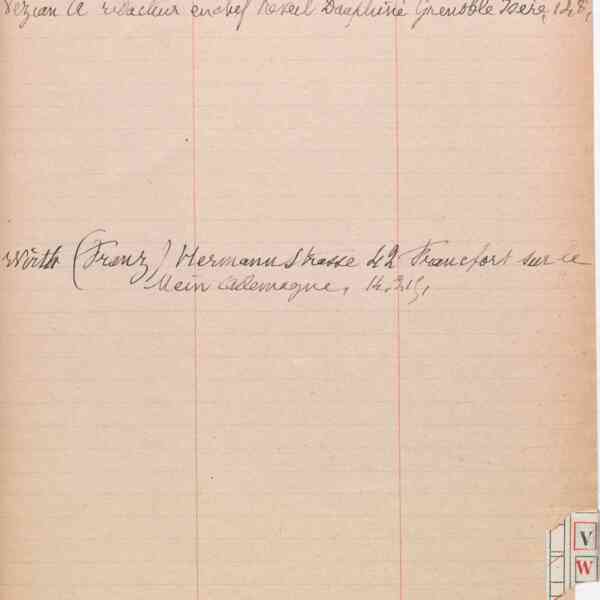 Vezian A rédacteur en chef Reveil Dauphiné Grenoble Isere,
Wirth (Franz) Hermannstrasse 42 Francfort sur le
Mein Allemagne,
V
W